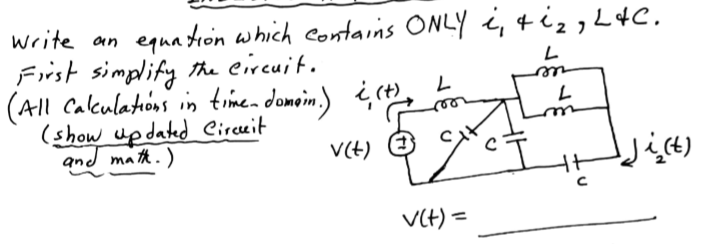 Write an equation which contains ONLY i₁ & i₂, L & C.
First simplify the circuit.
(All Calculations in time-domain.)
(show updated Circuit
and math.)
i₁(t)
L
L
L
V(t)
C
C
C
i₂(t)
V(t) =